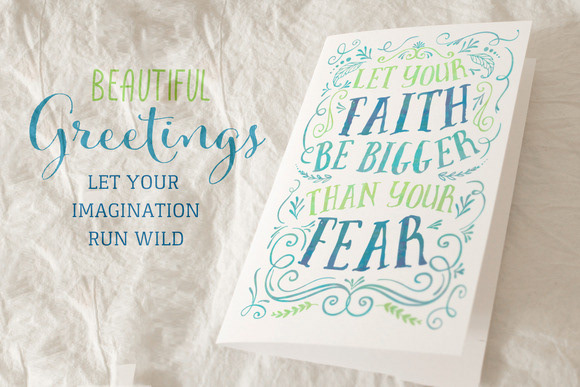 BEAUTIFUL
Greetings
LET YOUR
IMAGINATION
RUN WILD
LET YOUR
FAITH
BE BIGGER
THAN YOUR
FEAR